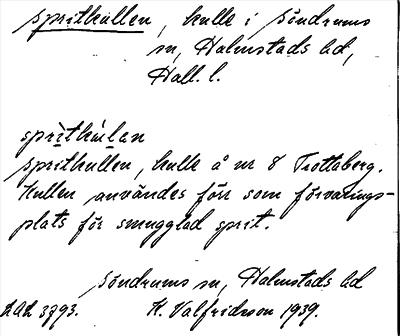 Sprithullen, kulle i Söndrums
sn, Halmstads hd,
Hall. l.
sprìthúlan
Sprithullen, kulle å nr 8 Trottaberg.
Kullen användes förr som förvarings-
plats för smugglad sprit.
Söndrums sn, Halmstads hd
LAL 3793. H. Valfridsson 1939.